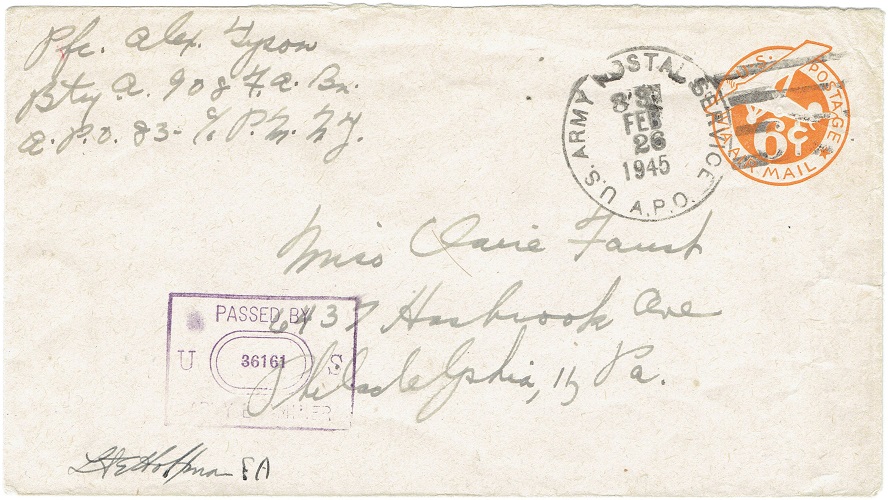 Pfc. Alex. Tyson
Bty A. 908 F.A. Bn.
A.P.O. 83 - % P.M. N.Y.
U.S. ARMY POSTAL SERVICE
FEB
26
1945
A.P.O.
U.S. POSTAGE
6¢
AIR MAIL
Miss Faust
6437 Hasbrook Ave
Philadelphia, 11, Pa.
PASSED BY
U 36161 S
ARMY EXAMINER
Hoffman FA